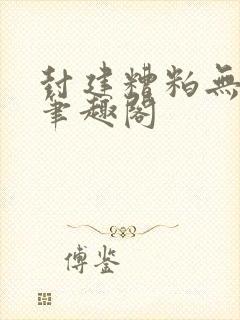 封建糟粕無
筆趣閣
傅鉴